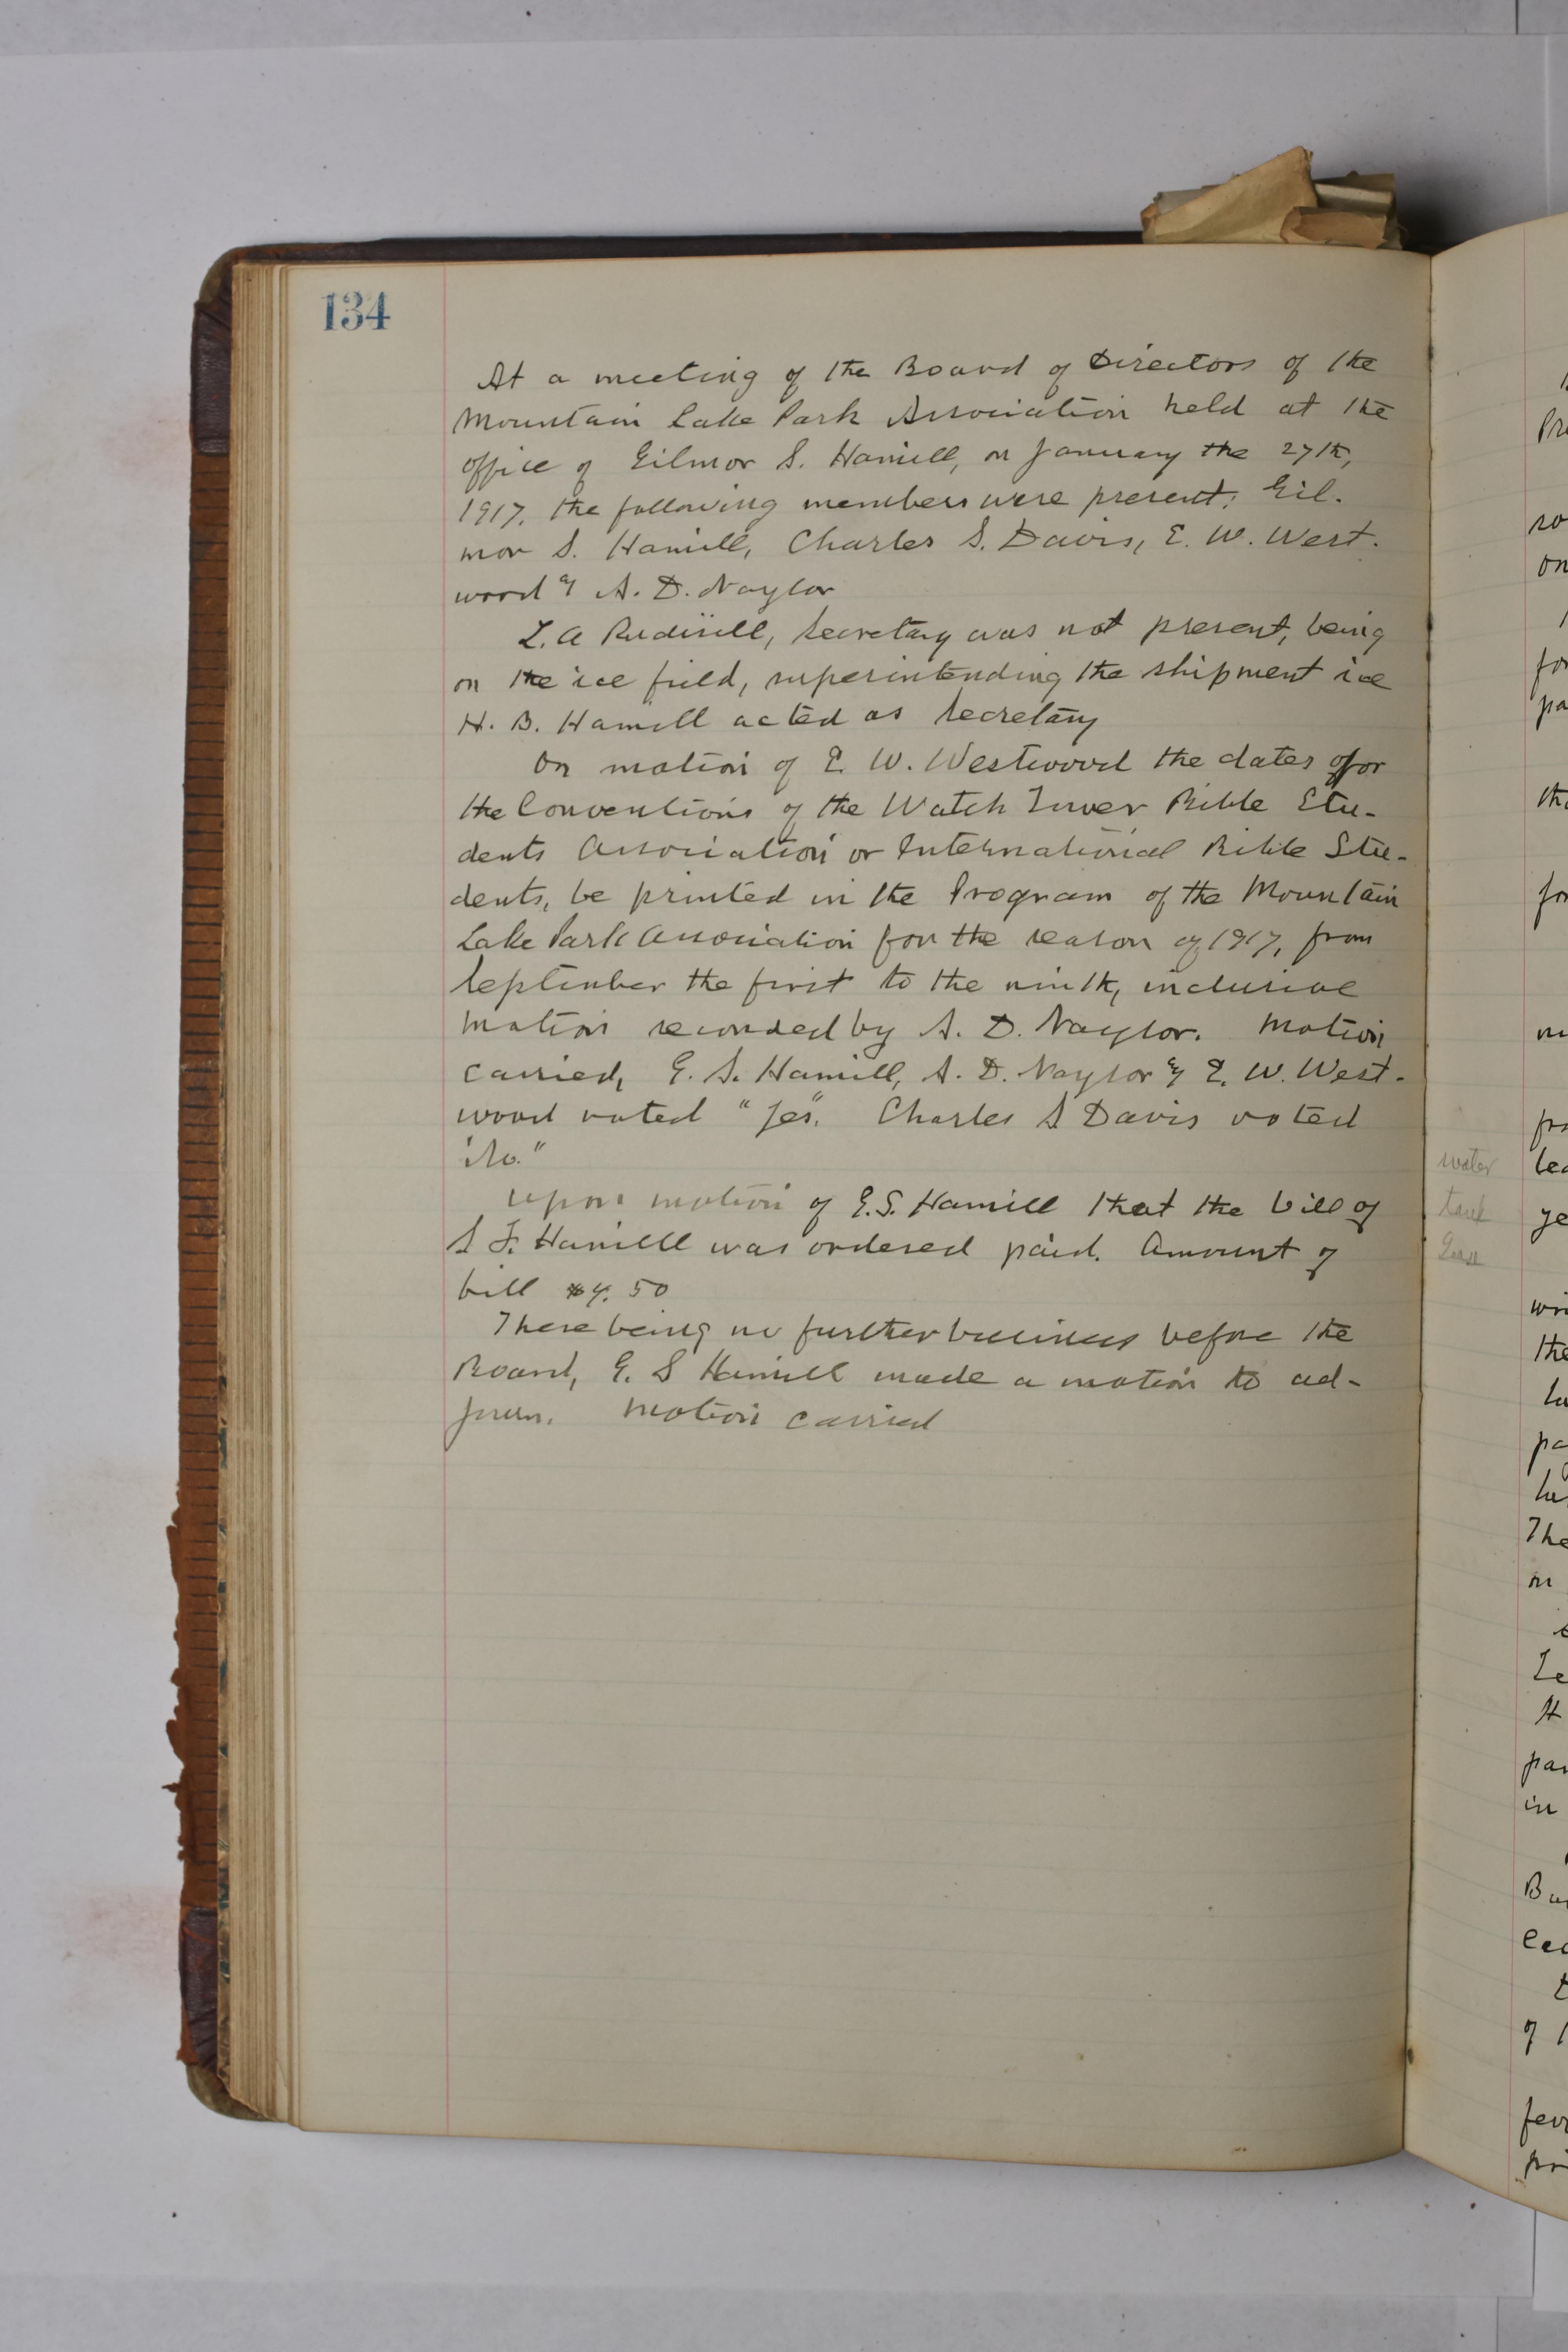 134
At a meeting of the Board of Directors of the
Mountain Lake Park Association held at the
office of Gilmor S. Hamill, on January the 27th,
1917, the following members were present: Gil-
mor S. Hamill, Charles S. Davis, E. W. West-
wood & A. D. Naylor
L. A Rudisill, Secretary was not present, being
on the ice field, superintending the shipment ice
H. B. Hamill acted as Secretary
On motion of E. W. Westwood the dates for
the Conventions of the Watch Tower Bible Stu-
dents Association or International Bible Stu-
dents, be printed in the Program of the Mountain
Lake Park Association for the season of 1917, from
September the first to the ninth, inclusive
Motion seconded by A. D. Naylor. Motion
carried, G. S. Hamill, A. D. Naylor & E. W. West-
wood voted "Yes". Charles S Davis voted
"No."
Upon motion of G. S. Hamill that the bill of
S F. Hamill was ordered paid. Amount of
bill $4.50
There being no further business before the
Board, G. S Hamill made a motion to ad-
journ. Motion carried
water
tank
Lease